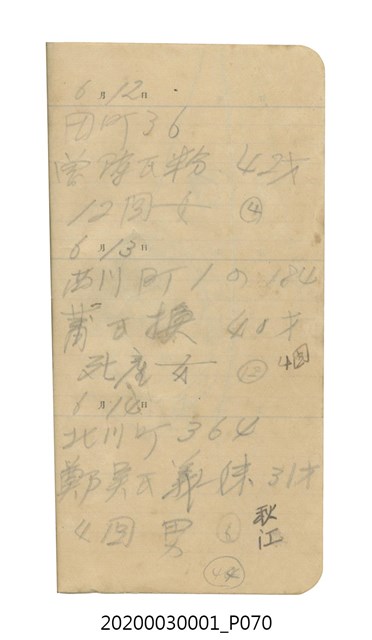 6月12日
田町36
曾陳氏粉 42才
12回女 ④
6月13日
西川町1の184
氏換 40才
死産女 ⑫ 4回
6月14日
北川町364
鄭吳氏義妹 31才
4回男 ⑥ 秋江
㊹
20200030001_P070